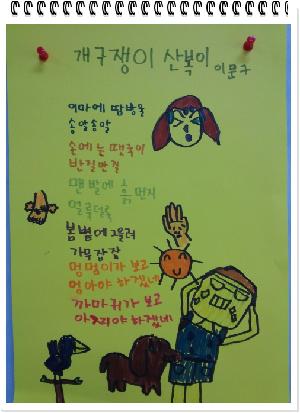 개구쟁이 산복이 이문구
이마에 땀방울
송알송알
손에는 땟국이
반질반질
맨발에 흙먼지
얼룩덜룩
봄볕에 그을려
가무잡잡
멍멍이가 보고
멍아야 하겠네
까마귀가 보고
아찌야 하겠네